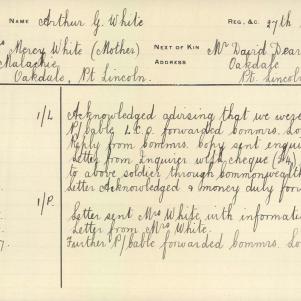 NAME Arthur G. White REG. &C. 27th
Mercy White (Mother) NEXT OF KIN Mr David Dear
Malachie ADDRESS Oakdale
Oakdale, Pt. Lincoln. Pt. Lincoln
1/L Acknowledged advising that we were
P/Cable L.C.O. forwarded Commrs. Lo
Reply from Commrs. Copy sent enqui
Letter from Enquirer with cheque
to above soldier through Commonwealth
Letter Acknowledged & money duly for
1/P. Letter sent Mrs White with informati
Letter from Mrs White.
7. Further P/Cable forwarded Commrs. Lo